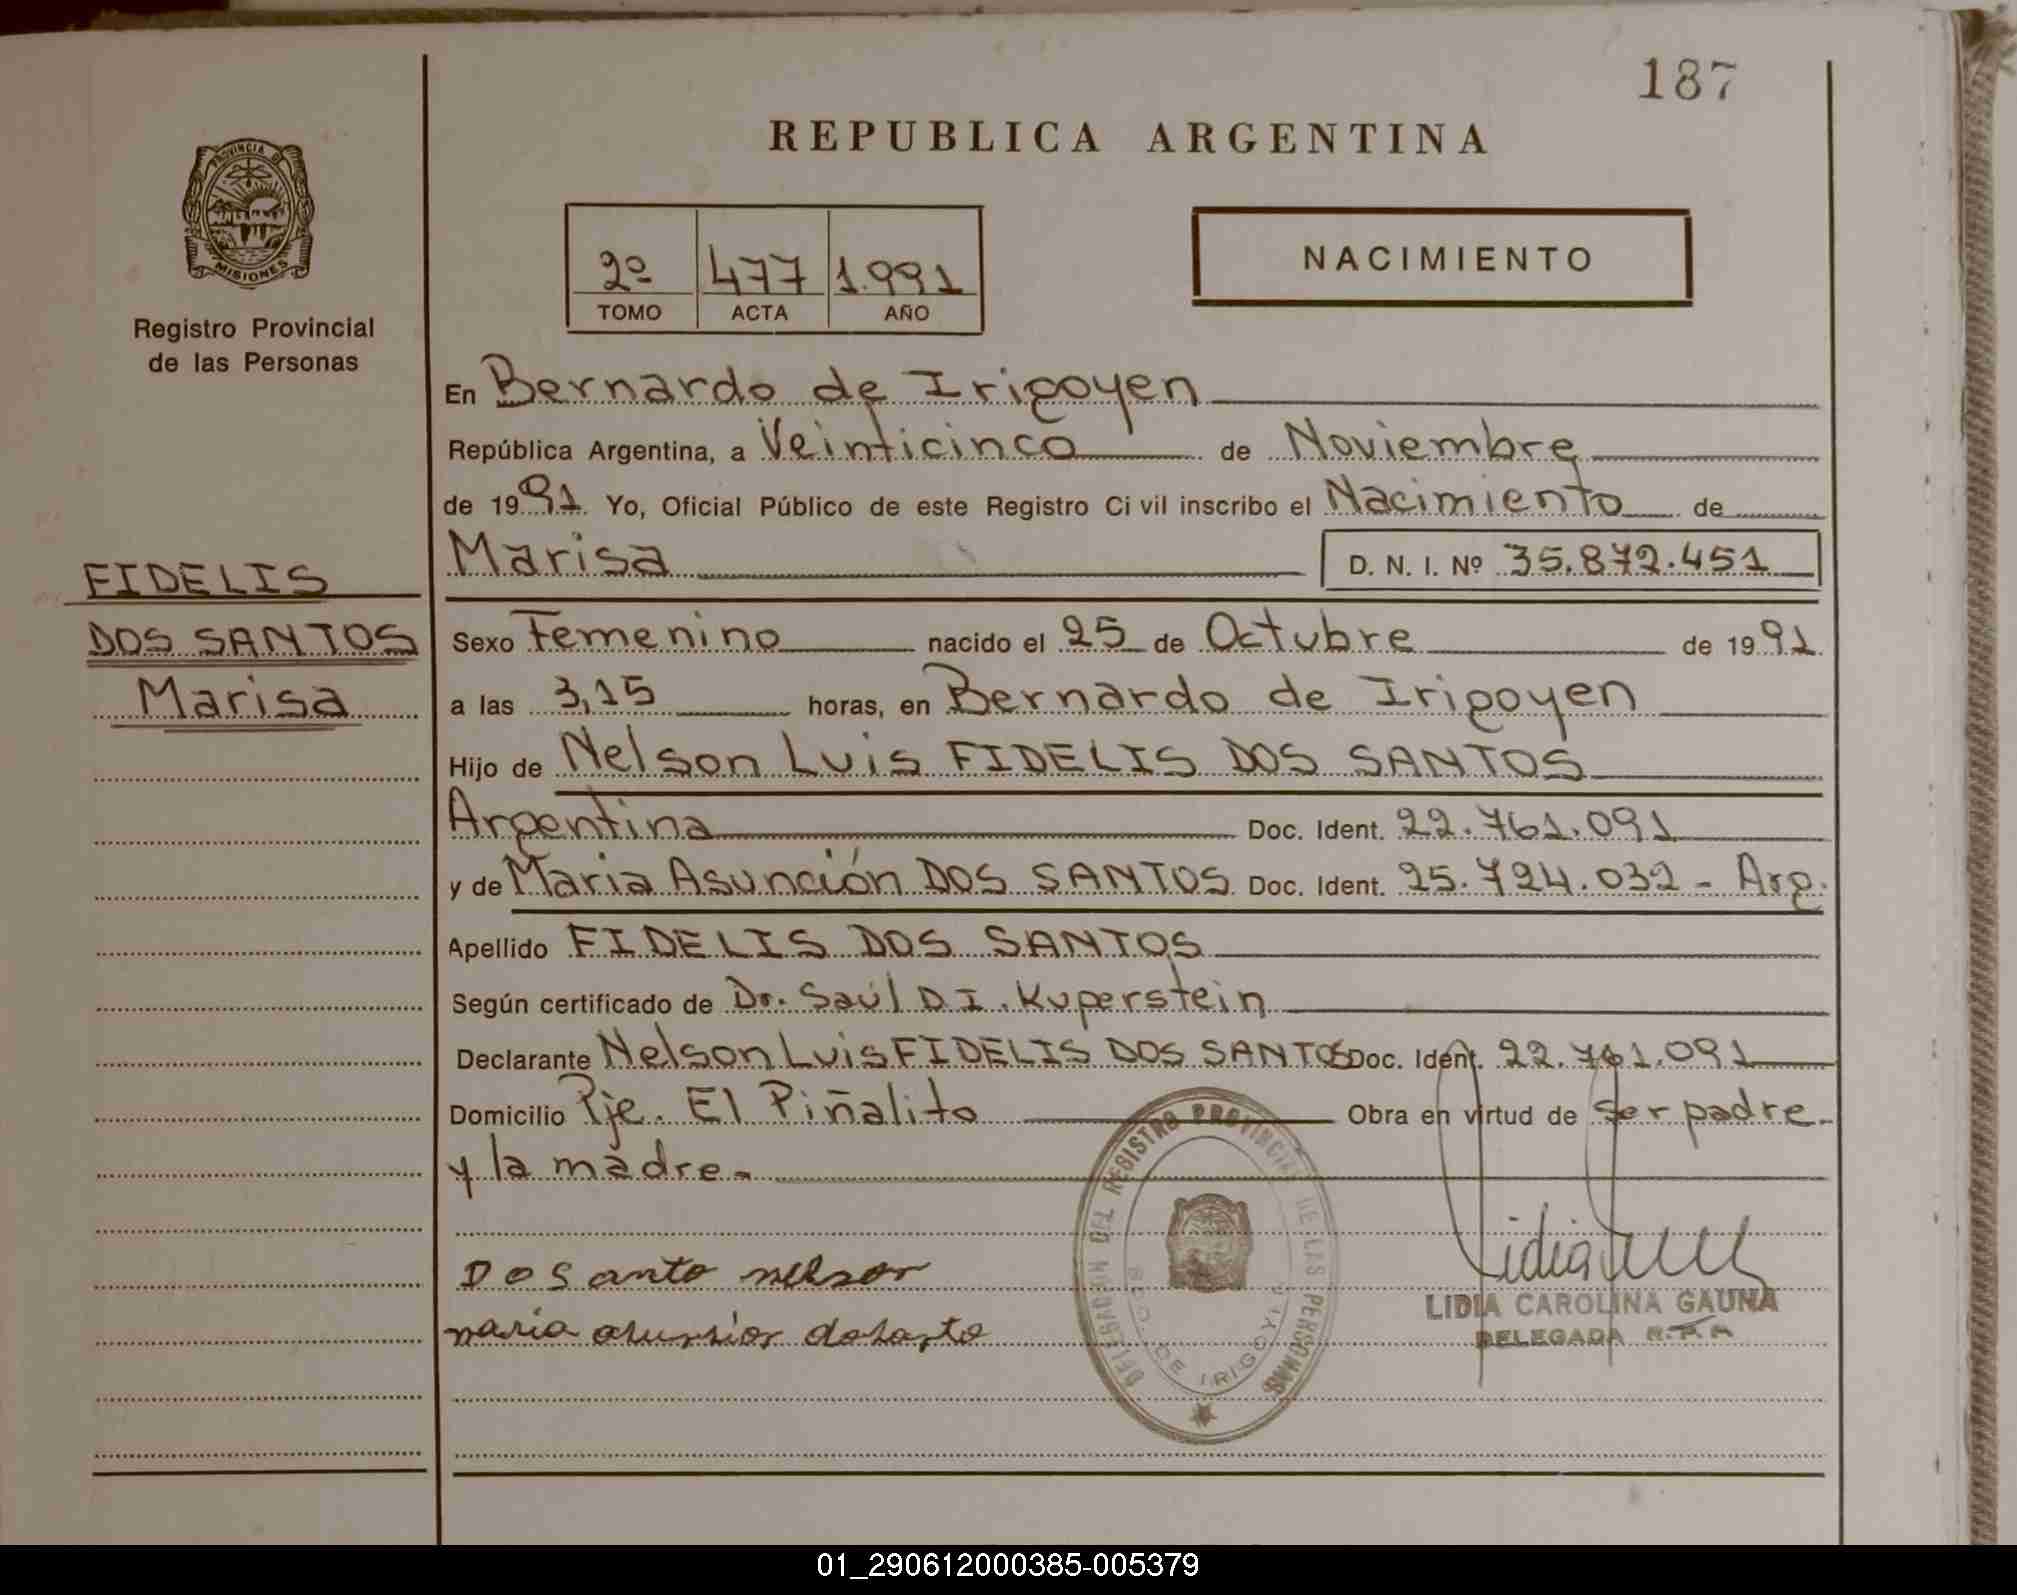 187
REPUBLICA ARGENTINA
PROVINCIA D
MISIONES
Registro Provincial
de las Personas
2º 477 1.991
TOMO ACTA AÑO
NACIMIENTO
FIDELIS
DOS SANTOS
Marisa
En Bernardo de Irigoyen
República Argentina, a Veinticinco de Noviembre
de 1991. Yo, Oficial Público de este Registro Ci vil inscribo el Nacimiento de
Marisa D. N. I. Nº 35.872.451
Sexo Femenino nacido el 25 de Octubre de 1991.
a las 3,15 horas, en Bernardo de Irigoyen
Hijo de Nelson Luis FIDELIS DOS SANTOS
Argentina Doc. Ident. 22.761.091
y de Maria Asunción DOS SANTOS Doc. Ident. 25.724.032 - Arg.
Apellido FIDELIS DOS SANTOS
Según certificado de Dr. Saúl D.I. Kuperstein
Declarante Nelson Luis FIDELIS DOS SANTOS Doc. Ident. 22.761.091
Domicilio Pje. El Piñalito Obra en virtud de ser padre
y la madre.-
DELEGACION DEL REGISTRO PROVINCIAL DE LAS PERSONAS
BDO. DE IRIGOYEN
Dosanto nelson
maria asunsion dosanto
Lidia
LIDIA CAROLINA GAUNA
DELEGADA R.P.P.
01_290612000385-005379